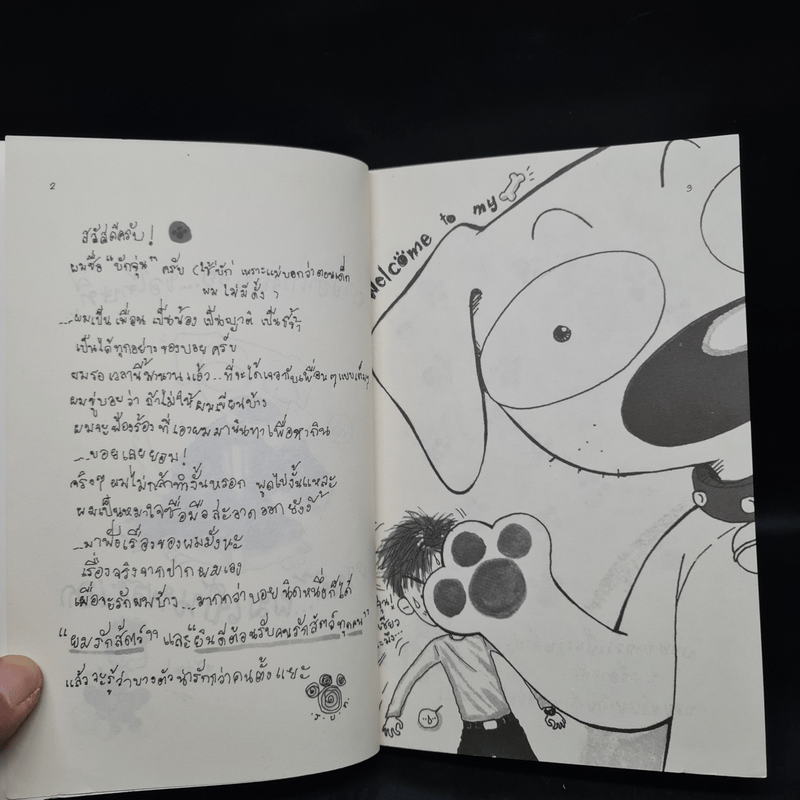 2
สวัสดีครับ!
ผมชื่อ "บักจุ่น" ครับ (ใช้ "บัก" เพราะแม่บอกว่าตอนเด็ก
ผมไม่มีดั้ง)
...ผมเป็นเพื่อน เป็นน้อง เป็นญาติ เป็นขี้ข้า
เป็นได้ทุกอย่างของบอย ครับ
ผมรอเวลานี้มานานแล้ว..ที่จะได้เจอกับเพื่อนๆแบบเต็มๆ
ผมขู่บอยว่า ถ้าไม่ให้ผมเขียนบ้าง
ผมจะฟ้องร้อง ที่เอาผมมานินทาเพื่อหากิน
...บอยเลยยอม!
จริงๆ ผมไม่กล้าทำงั้นหรอก พูดไปงั้นแหละ
ผมเป็นหมาใจซื่อมือสะอาด ออก ยังงี้
...มาฟังเรื่องของผมมั่งนะ
เรื่องจริงจากปากผมเอง
เผื่อจะรักผมบ้าง...มากกว่าบอยนิดหนึ่งก็ได้
"ผมรักสัตว์" และ "ยินดีต้อนรับคนรักสัตว์ทุกคน"
แล้วจะรู้ว่าบางตัวน่ารักกว่าคนตั้งเยอะ
3
Welcome to my